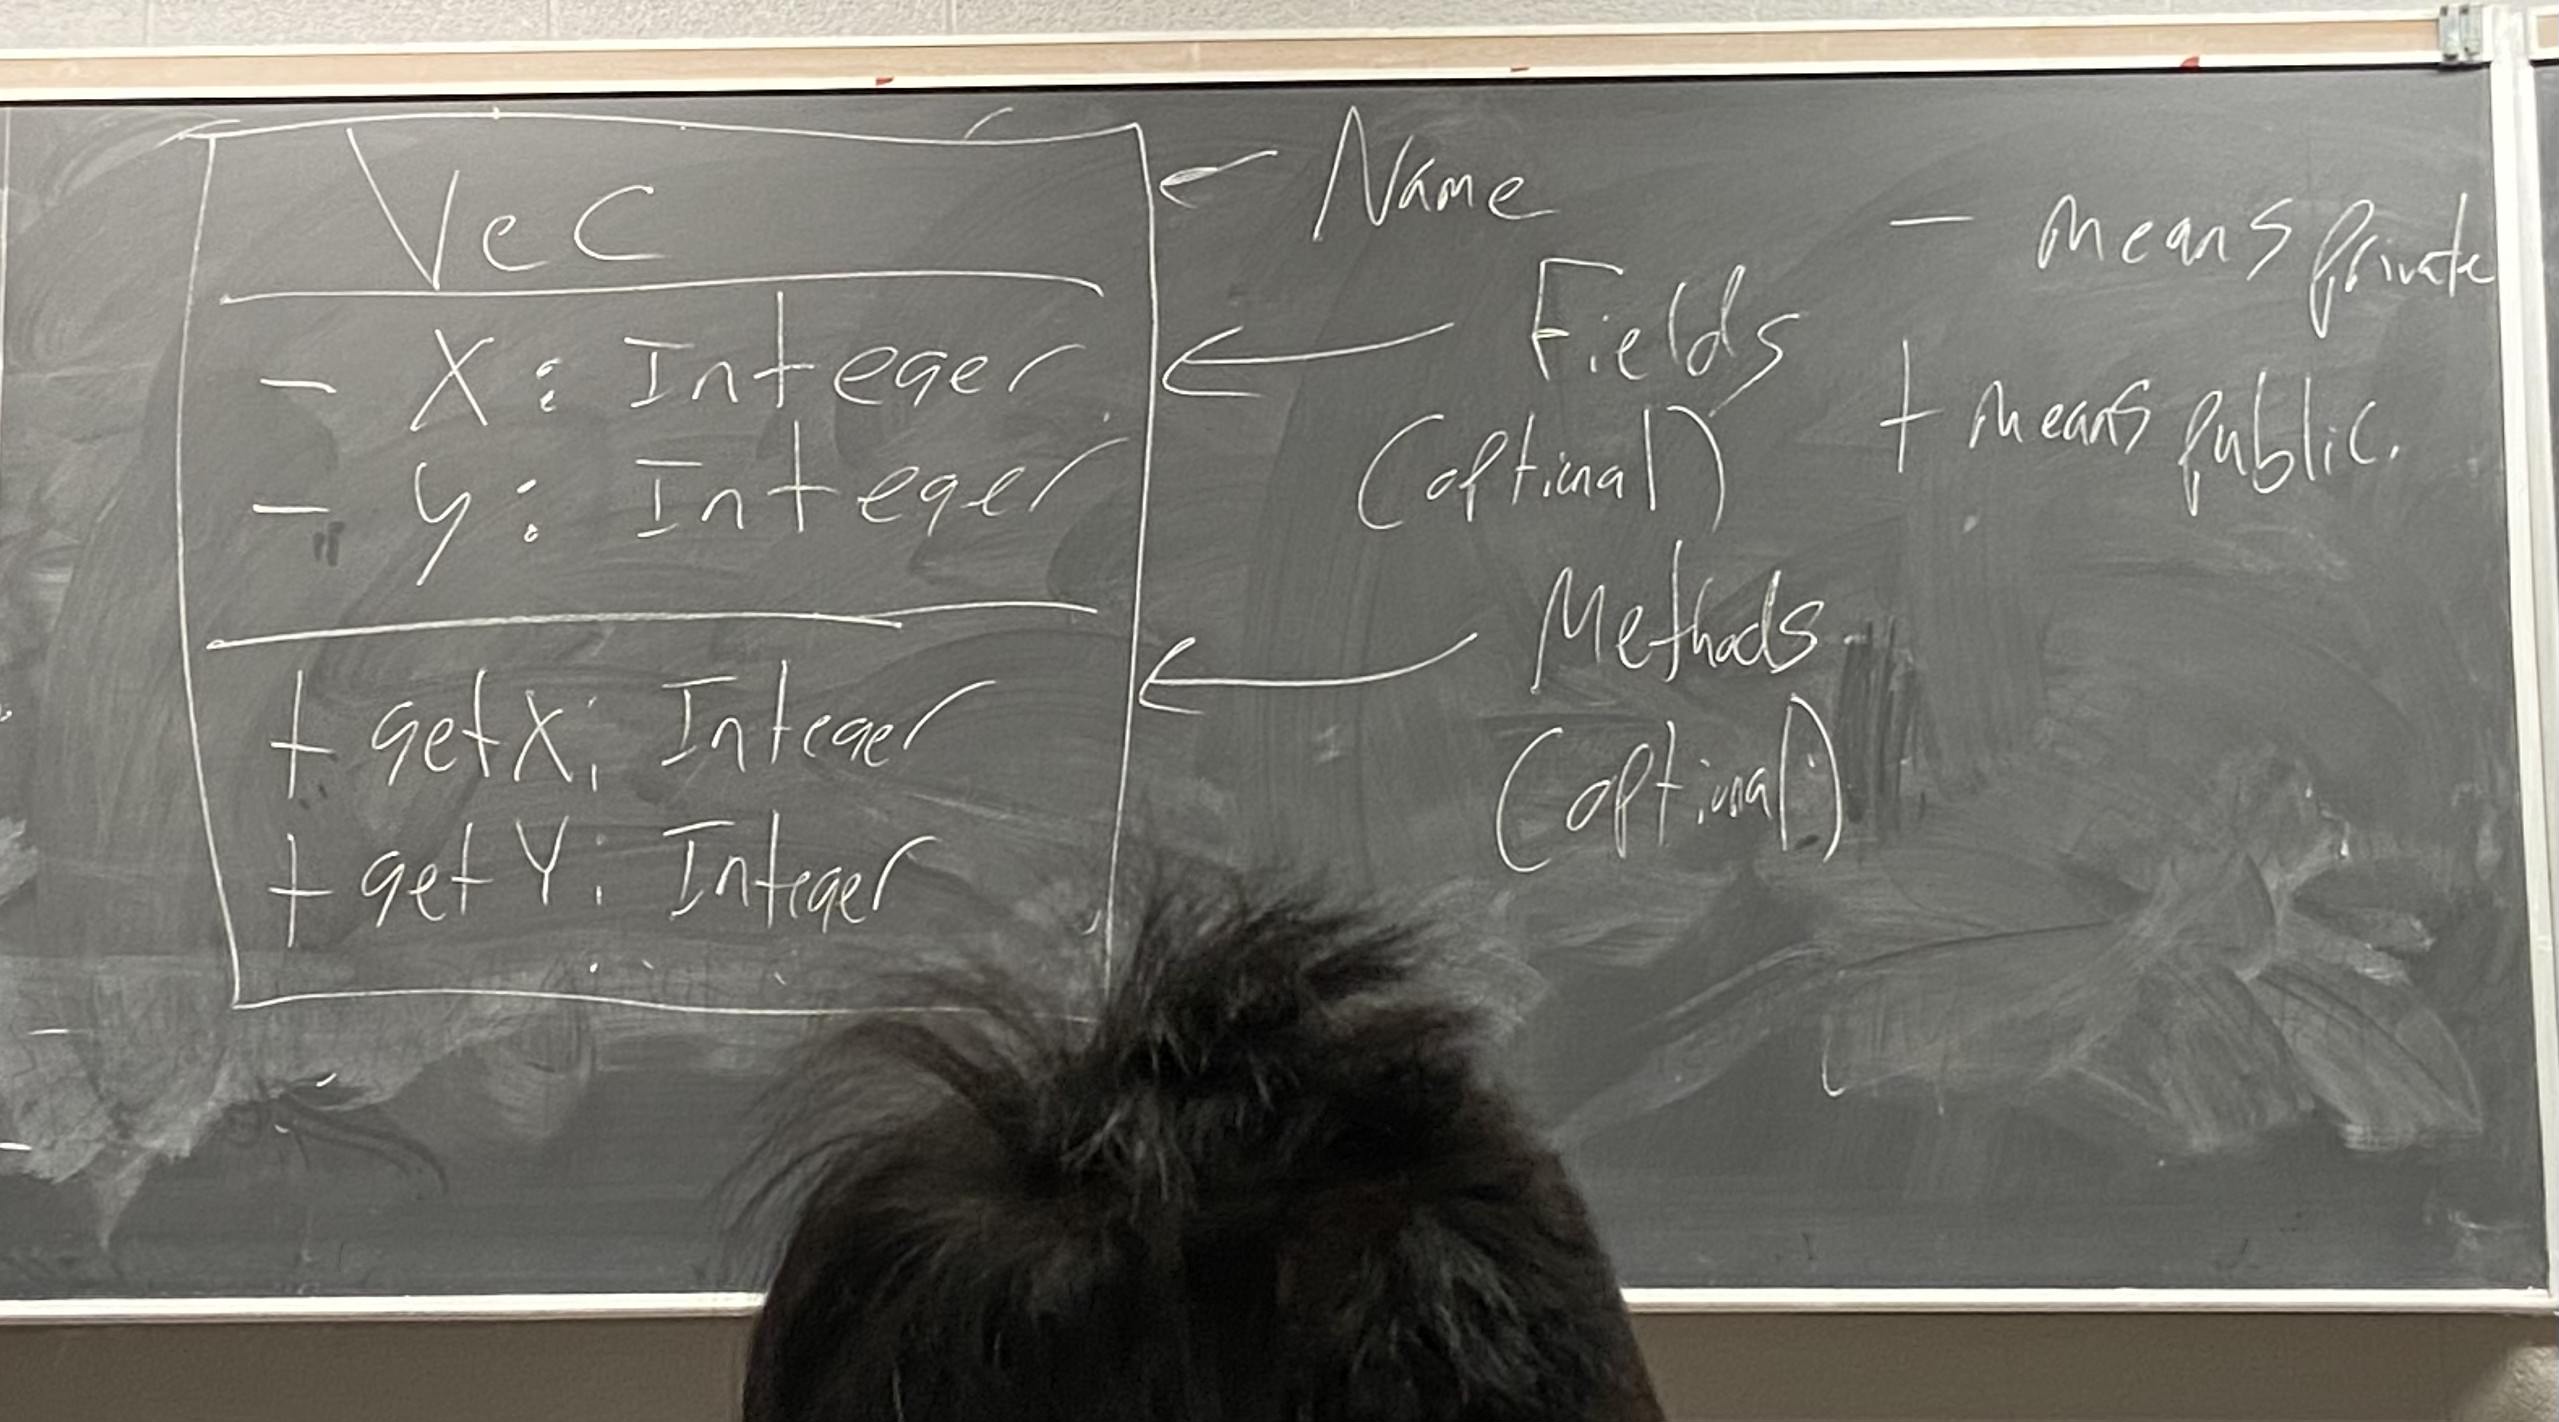 Vec
- X: Integer
- y: Integer
+ getX: Integer
+ getY: Integer
Name
Fields
(optional)
Methods
(optional)
- means private
+ means public.